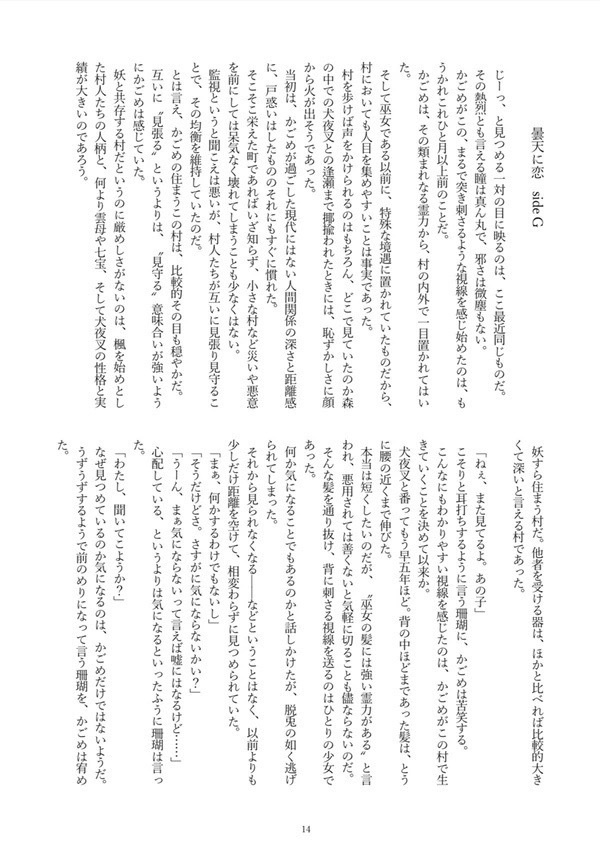 曇天に恋　side G
じーっ、と見つめる一対の目に映るのは、ここ最近同じものだ。
その熱烈とも言える瞳は真ん丸で、邪さは微塵もない。
かごめがこの、まるで突き刺さるような視線を感じ始めたのは、も
うかれこれひと月以上前のことだ。
かごめは、その類まれなる霊力から、村の内外で一目置かれてはい
た。
そして巫女である以前に、特殊な境遇に置かれていたものだから、
村においても人目を集めやすいことは事実であった。
村を歩けば声をかけられるのはもちろん、どこで見ていたのか森
の中での犬夜叉との逢瀬まで揶揄われたときには、恥ずかしさに顔
から火が出そうであった。
当初は、かごめが過ごした現代にはない人間関係の深さと距離感
に、戸惑いはしたもののそれにもすぐに慣れた。
そこそこ栄えた町であればいざ知らず、小さな村など災いや悪意
を前にしては呆気なく壊れてしまうことも少なくはない。
監視というと聞こえは悪いが、村人たちが互いに見張り見守るこ
とで、その均衡を維持していたのだ。
とは言え、かごめの住まうこの村は、比較的その目も穏やかだ。
互いに〝見張る〟というよりは、〝見守る〟意味合いが強いよう
にかごめは感じていた。
妖と共存する村だというのに厳めしさがないのは、楓を始めとし
た村人たちの人柄と、何より雲母や七宝、そして犬夜叉の性格と実
績が大きいのであろう。
妖すら住まう村だ。他者を受ける器は、ほかと比べれば比較的大き
くて深いと言える村であった。
「ねぇ、また見てるよ。あの子」
こそりと耳打ちするように言う珊瑚に、かごめは苦笑する。
こんなにもわかりやすい視線を感じたのは、かごめがこの村で生
きていくことを決めて以来か。
犬夜叉と番ってもう早五年ほど。背の中ほどまであった髪は、とう
に腰の近くまで伸びた。
本当は短くしたいのだが、〝巫女の髪には強い霊力がある〟と言
われ、悪用されては善くないと気軽に切ることも儘ならないのだ。
そんな髪を通り抜け、背に刺さる視線を送るのはひとりの少女で
あった。
何か気になることでもあるのかと話しかけたが、脱兎の如く逃げ
られてしまった。
それから見られなくなる――などということはなく、以前よりも
少しだけ距離を空けて、相変わらずに見つめられていた。
「まぁ、何かするわけでもないし」
「そうだけどさ。さすがに気にならないかい？」
「うーん、まぁ気にならないって言えば嘘にはなるけど……」
心配している、というよりは気になるといったふうに珊瑚は言っ
た。
「わたし、聞いてこようか？」
なぜ見つめているのか気になるのは、かごめだけではないようだ。
うずうずするようで前のめりになって言う珊瑚を、かごめは宥め
た。
14